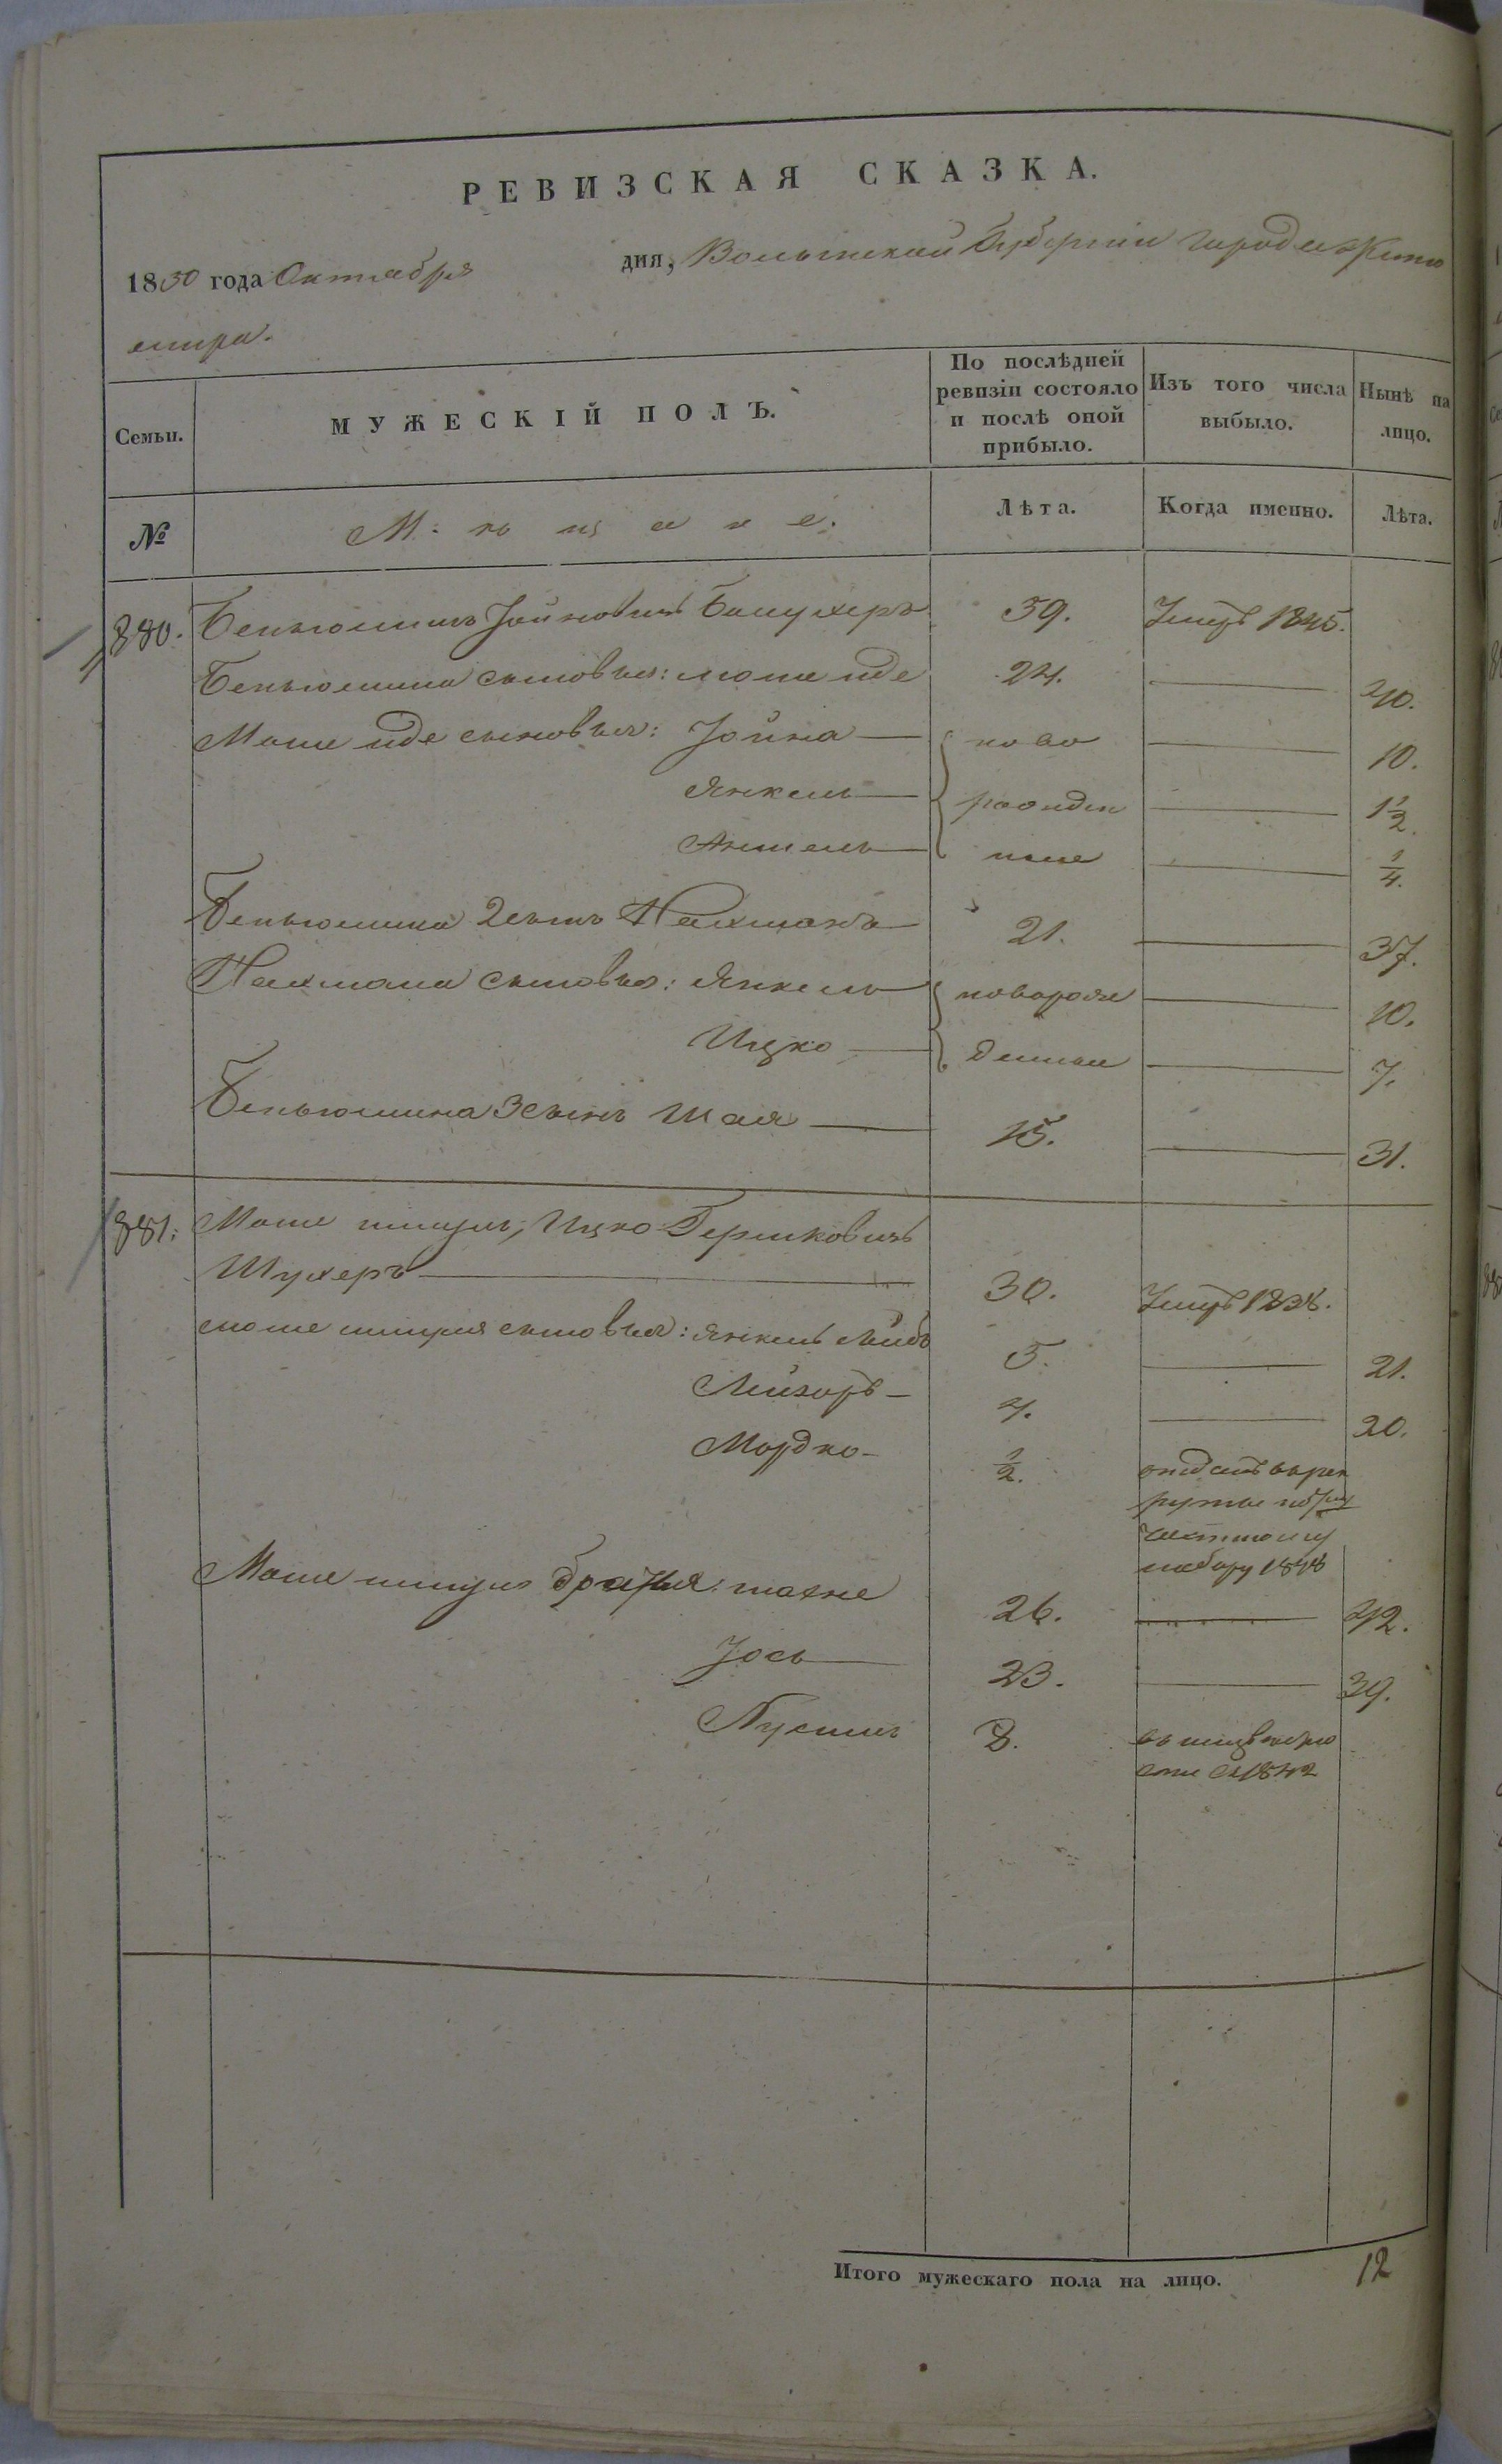 РЕВИЗСКАЯ СКАЗКА.
1850 года Октября дня, Волынской Губернии города Жито
мира.
Семьи.
МУЖЕСКІЙ ПОЛЪ.
По послѣдней ревизіи состояло и послѣ оной прибыло.
Изъ того числа выбыло.
Нынѣ на лицо.
№
Мѣщане.
Лѣта.
Когда именно.
Лѣта.
880. Беньюминъ Іойновичъ 59. Умеръ 1845.
Беньюмина сыновья: Моше Иде 24. 40.
Моше Иде сыновья: Іойна ново 10.
Янкель рожден 1 1/2
Аншель ные 1/4.
Беньюмина 2 сынъ Нахманъ 21. 37.
Нахмана сыновья: Янкель новорож 10.
Ицко денные 7.
Беньюмина 3 сынъ Шая 15. 31.
881. Моше Ицко Гершковичъ
Шухеръ 30. Умеръ 1838.
Моше сыновья: Янкель Лейбъ 5. 21.
4. 20.
Мордко 1/2. отданъ въ рек
руты по
частному
набору 1848
Моше братья: 26. 42.
Іось 23. 39.
Нусинъ 8.
1842
Итого мужескаго пола на лицо. 12